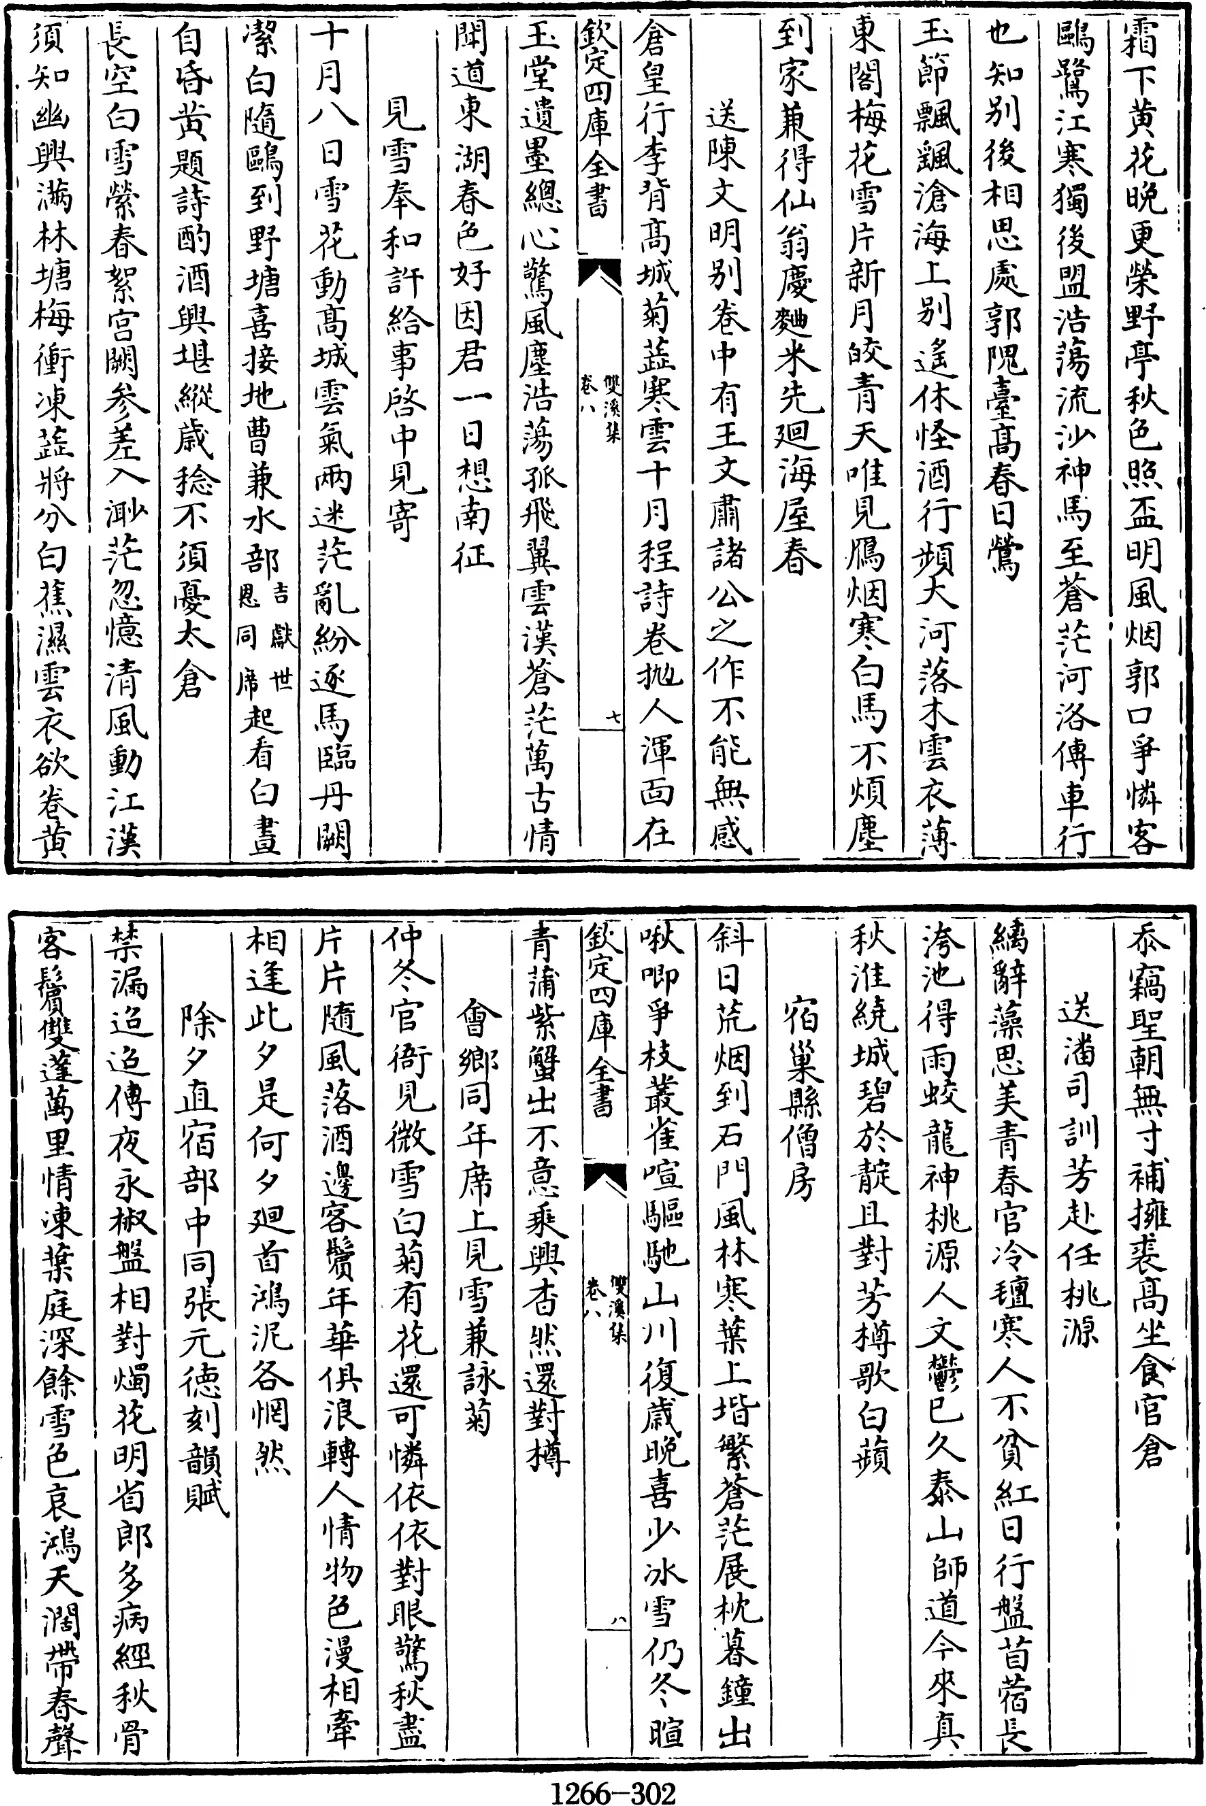 霜下黄花晩更榮野亭秋色照盃明風烟郭口爭憐客
鷗鷺江寒獨後盟浩蕩流沙神馬至蒼茫河洛傳車行
也知别後相思處郭隗臺髙春日鶯
玉節飄飄滄海上别遙休怪酒行頻大河落木雲衣薄
東閣梅花雪片新月皎青天唯見鴈烟寒白馬不煩塵
到家兼得仙翁慶麯米先廻海屋春
送陳文明别卷中有王文肅諸公之作不能無感
倉皇行李背髙城菊蕋寒雲十月程詩卷抛人渾面在
欽定四庫全書
雙溪集
卷八
七
玉堂遺墨總心驚風塵浩蕩孤飛翼雲漢蒼茫萬古情
聞道東湖春色好因君一日想南征
見雪奉和許給事啓中見寄
十月八日雪花動髙城雲氣兩迷茫亂紛逐馬臨丹闕
潔白隨鷗到野塘喜接地曹兼水部吉獻世恩同席起看白晝
自昏黄題詩酌酒興堪縱歳稔不須憂太倉
長空白雪縈春絮宫闕參差入渺茫忽憶清風動江漢
須知幽興滿林塘梅衝凍蕋將分白蕉濕雲衣欲卷黄
忝竊聖朝無寸補擁裘髙坐食官倉
送潘司訓芳赴任桃源
縭辭藻思美青春官冷氊寒人不貧紅日行盤苜蓿長
洿池得雨蛟龍神桃源人文鬱已久泰山師道今來真
秋淮繞城碧於靛且對芳樽歌白蘋
宿巢縣僧房
斜日荒烟到石門風林寒葉上堦繁蒼茫展枕暮鐘出
啾唧爭枝叢雀喧驅馳山川復歳晩喜少冰雪仍冬暄
欽定四庫全書
雙溪集
卷八
八
青蒲紫蟹出不意乘興杳然還對樽
會鄉同年席上見雪兼詠菊
仲冬官衙見微雪白菊有花還可憐依依對眼驚秋盡
片片隨風落酒邊客鬢年華俱浪轉人情物色漫相牽
相逢此夕是何夕廻首鴻泥各惘然
除夕直宿部中同張元徳刻韻賦
禁漏迢迢傳夜永椒盤相對燭花明省郎多病經秋骨
客鬢雙蓬萬里情凍葉庭深餘雪色哀鴻天濶帶春聲
1266-302